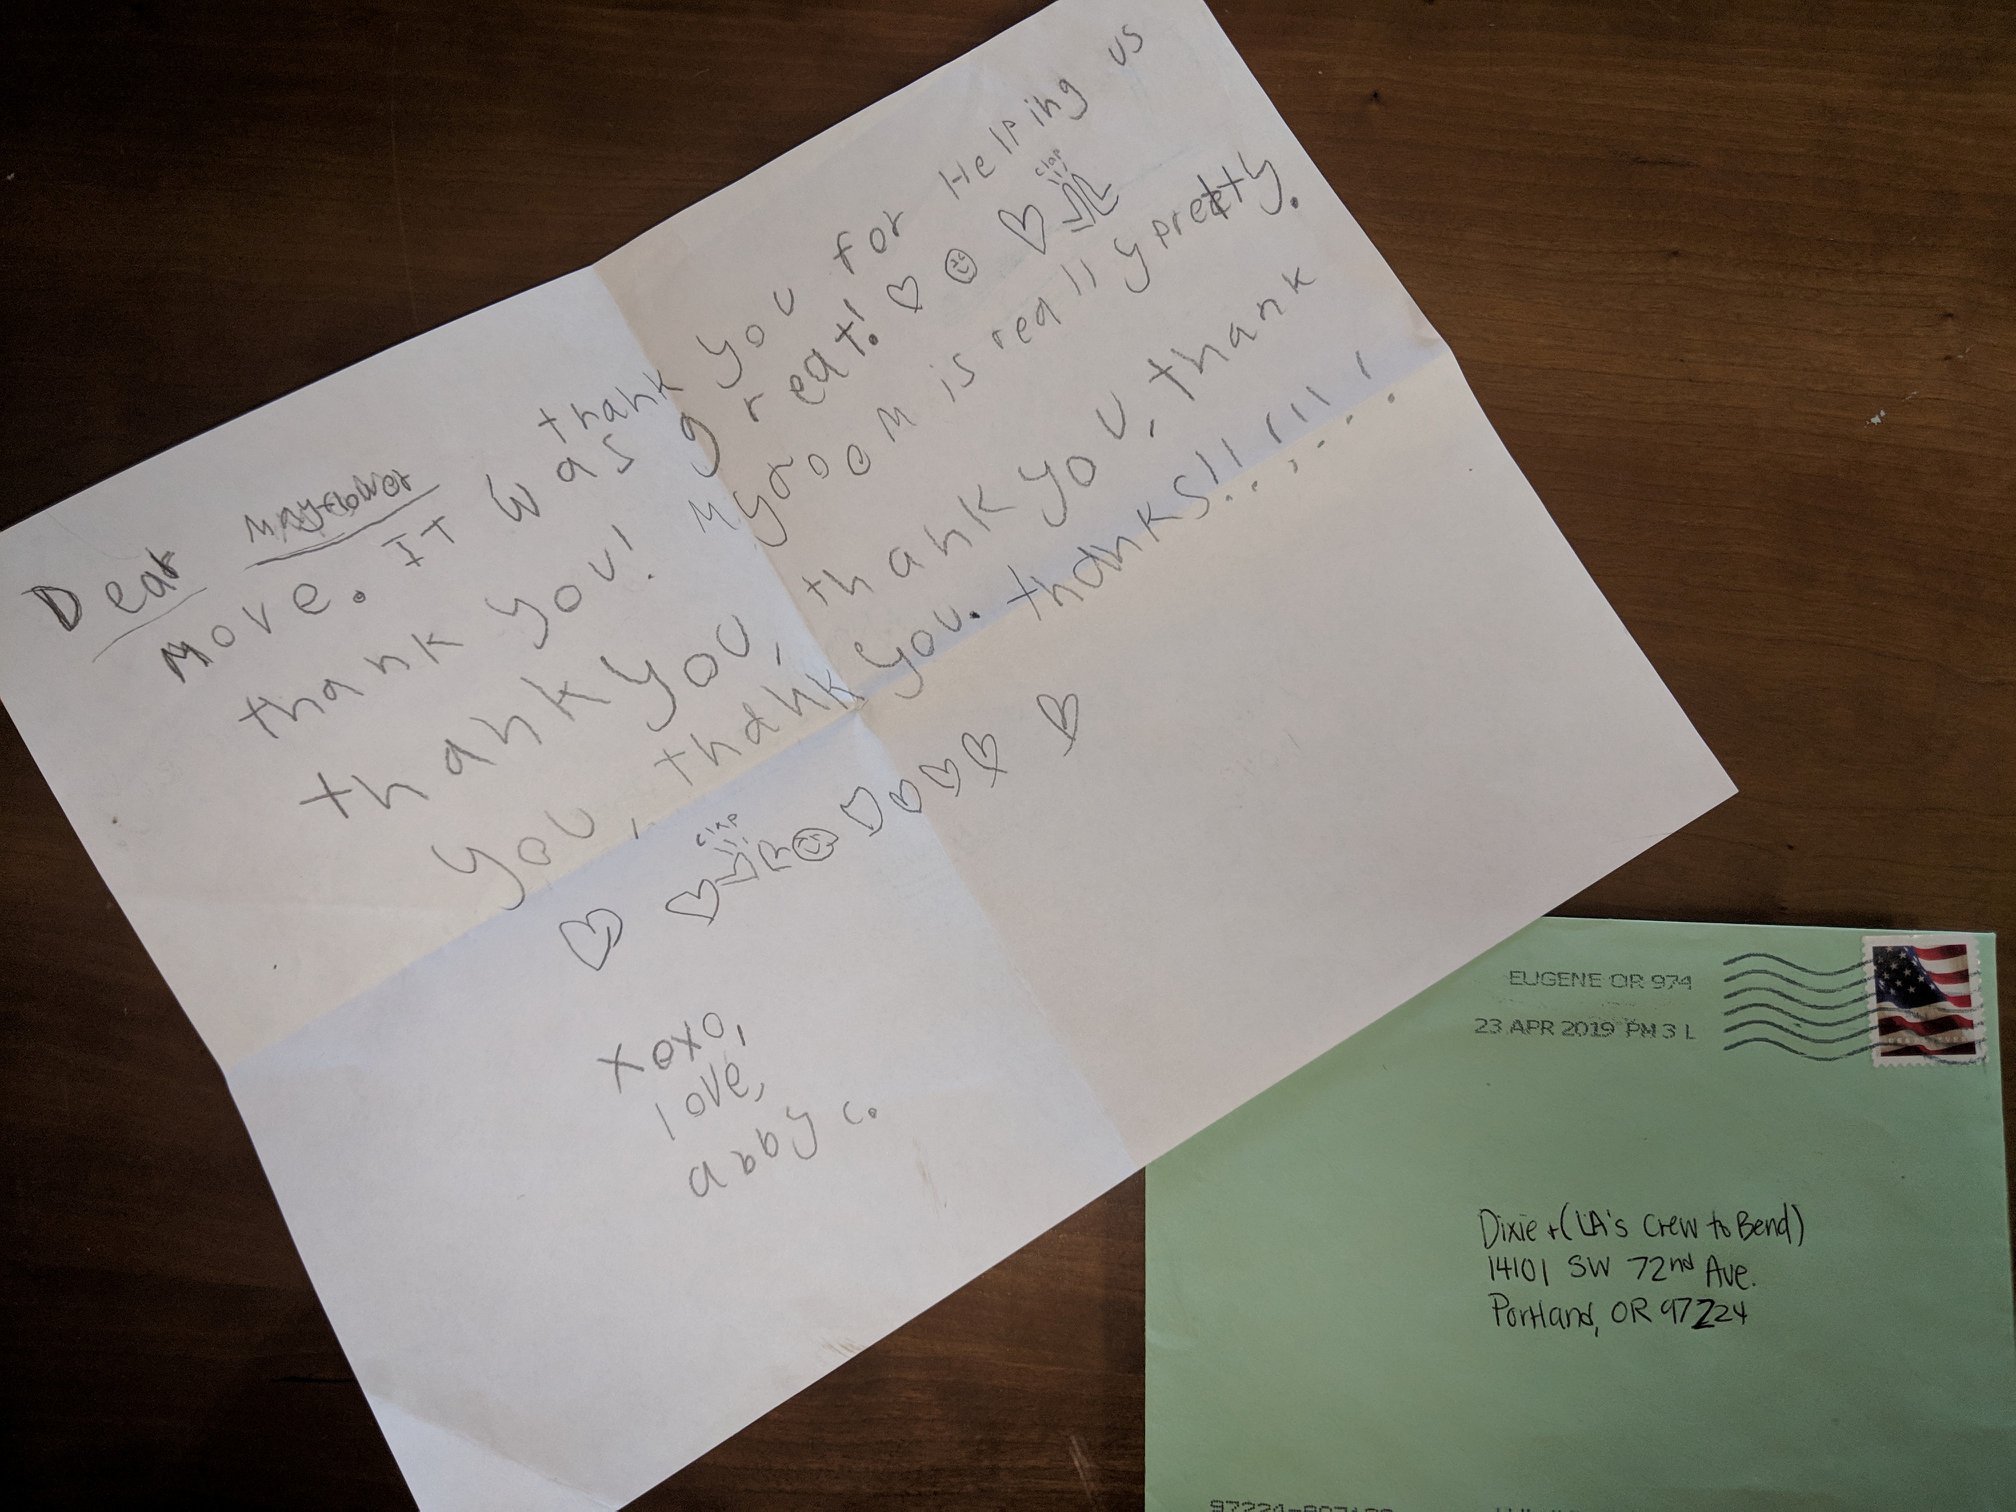 Dear Mayflower thank you for Helping us
Move. IT Was great! clap
thank you! My room is really pretty.
thank you, thank you, thank
you, thank you. thanks!!!!!!!
clap
xoxo,
love,
abby c.
EUGENE OR 974
23 APR 2019 PM 3 L
Dixie + (LA's Crew to Bend)
14101 SW 72nd Ave.
Portland, OR 97224